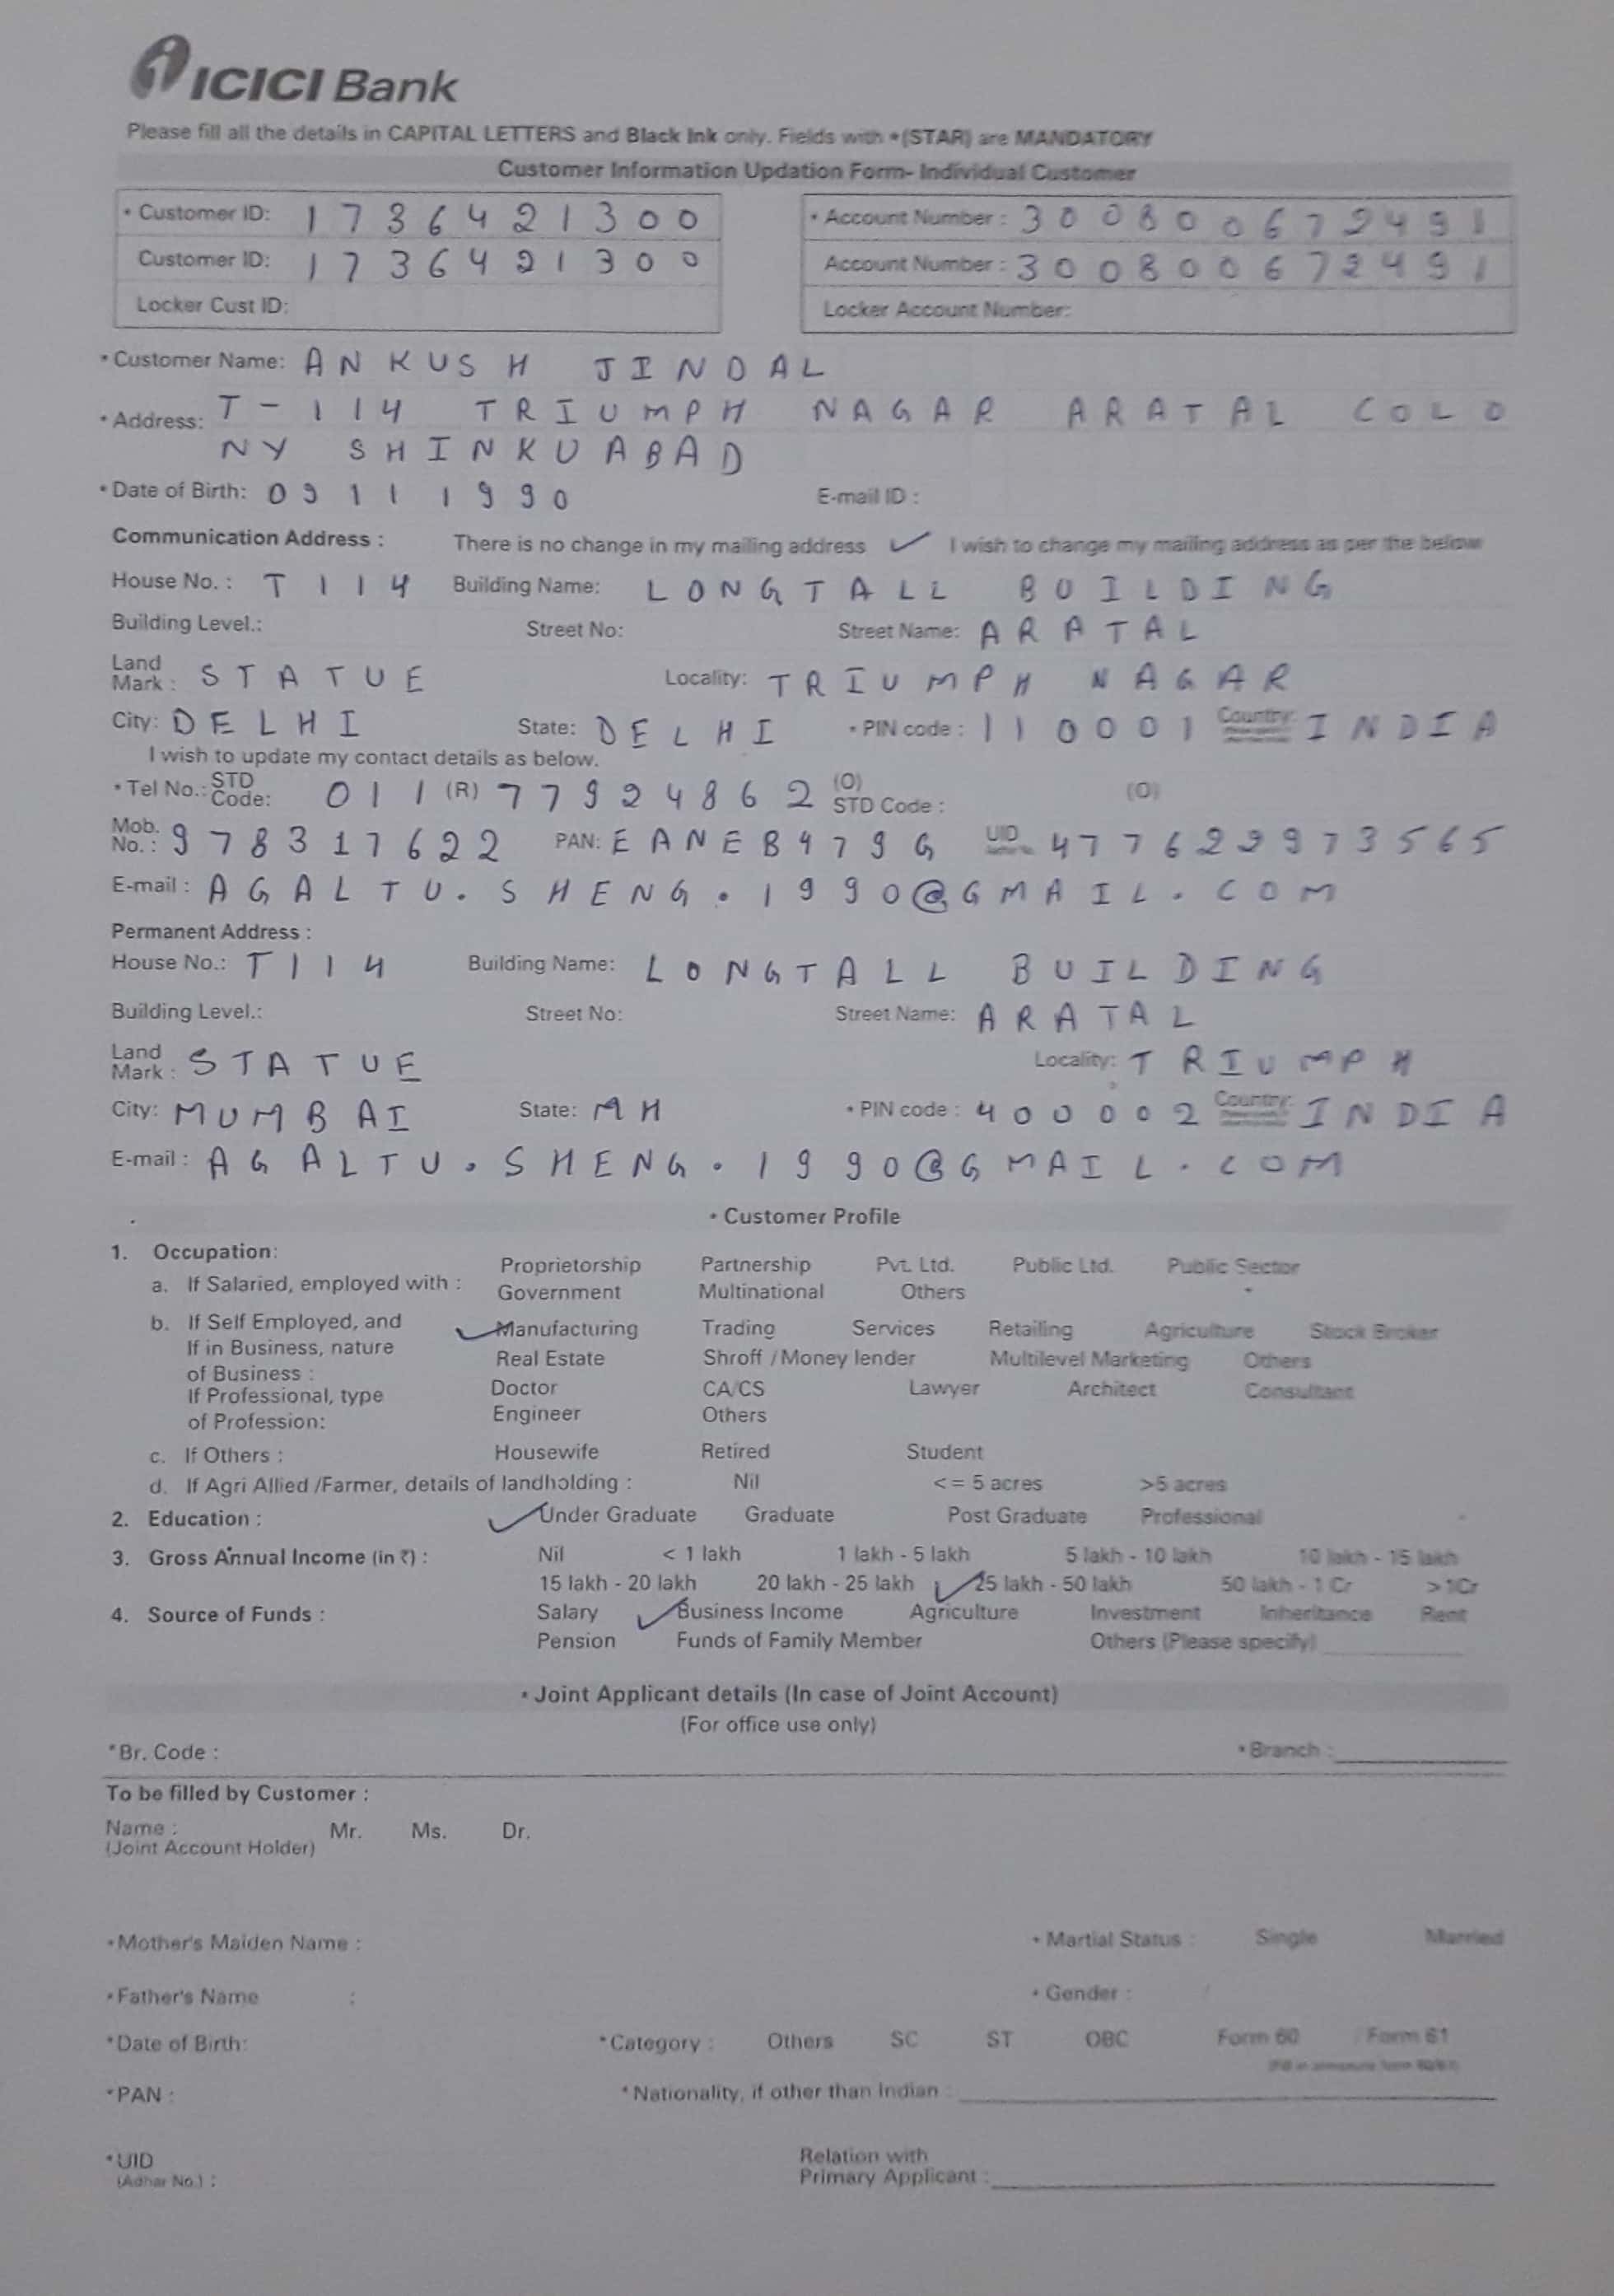 ICICI Bank
Please fill all the details in CAPITAL LETTERS and Black Ink only. Fields with *(STAR) are MANDATORY
Customer Information Updation Form- Individual Customer
* Customer ID: 1736421300 * Account Number : 30080067 2491
Customer ID: 1736421300 Account Number : 30080067 2491
Locker Cust ID: Locker Account Number:
* Customer Name: ANKUSH JINDAL
* Address: T-114 TRIUMPH NAGAR ARATAL COLO
NY SHINKUABAD
* Date of Birth: 09111990 E-mail ID :
Communication Address : There is no change in my mailing address ✓ I wish to change my mailing address as per the below
House No. : T114 Building Name: LONGTALL BUILDING
Building Level.: Street No: Street Name: ARATAL
Land Mark : STATUE Locality: TRIUMPH NAGAR
City: DELHI State: DELHI * PIN code : 110001 Country: INDIA
I wish to update my contact details as below.
* Tel No.: STD Code: 011 (R) 77924862 (O) STD Code : (O)
Mob. No. : 9783177622 PAN: EANEB4799G UID 477622973565
E-mail : AGALTU.SHENG.1990@GMAIL.COM
Permanent Address :
House No.: T114 Building Name: LONGTALL BUILDING
Building Level.: Street No: Street Name: ARATAL
Land Mark : STATUE Locality: TRIUMPH
City: MUMBAI State: MH * PIN code : 400002 Country: INDIA
E-mail : AGALTU.SHENG.1990@GMAIL.COM
* Customer Profile
1. Occupation:
a. If Salaried, employed with : Proprietorship Partnership Pvt. Ltd. Public Ltd. Public Sector
Government Multinational Others
b. If Self Employed, and ✓ Manufacturing Trading Services Retailing Agriculture Stock Broker
If in Business, nature
of Business : Real Estate Shroff / Money lender Multilevel Marketing Others
If Professional, type Doctor CA/CS Lawyer Architect Consultant
of Profession: Engineer Others
c. If Others : Housewife Retired Student
d. If Agri Allied /Farmer, details of landholding : Nil <= 5 acres >5 acres
2. Education : ✓ Under Graduate Graduate Post Graduate Professional
3. Gross Annual Income (in ₹) : Nil < 1 lakh 1 lakh - 5 lakh 5 lakh - 10 lakh 10 lakh - 15 lakh
15 lakh - 20 lakh 20 lakh - 25 lakh ✓ 25 lakh - 50 lakh 50 lakh - 1 Cr >1Cr
4. Source of Funds : Salary ✓ Business Income Agriculture Investment Inheritance Rent
Pension Funds of Family Member Others (Please specify)
* Joint Applicant details (In case of Joint Account)
(For office use only)
*Br. Code : * Branch :
To be filled by Customer :
Name : Mr. Ms. Dr.
(Joint Account Holder)
*Mother's Maiden Name : * Martial Status : Single Married
*Father's Name : * Gender :
*Date of Birth: *Category : Others SC ST OBC Form 60 Form 61
*PAN : * Nationality, if other than Indian :
*UID Relation with
(Adhar No.) : Primary Applicant :